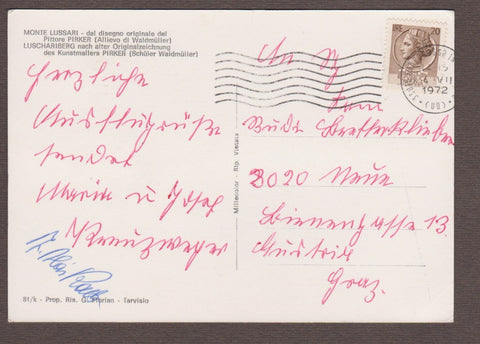 MONTE LUSSARI - dal disegno originale del
Pittore PIRKER (Allievo di Waldmüller)
LUSCHARIBERG nach alter Originalzeichnung
des Kunstmalers PIRKER (Schüler Waldmüller)
Herzliche
Ausflugsgrüße
sendet
Maria u Josef
Kreuzweger
81/k - Prop. Ris. G. Florian - Tarvisio
Millecolor - Rip. Vietata
20
VII
1972
An
Fam
Rudi
8020
Bienengasse 13
Austria
Graz.